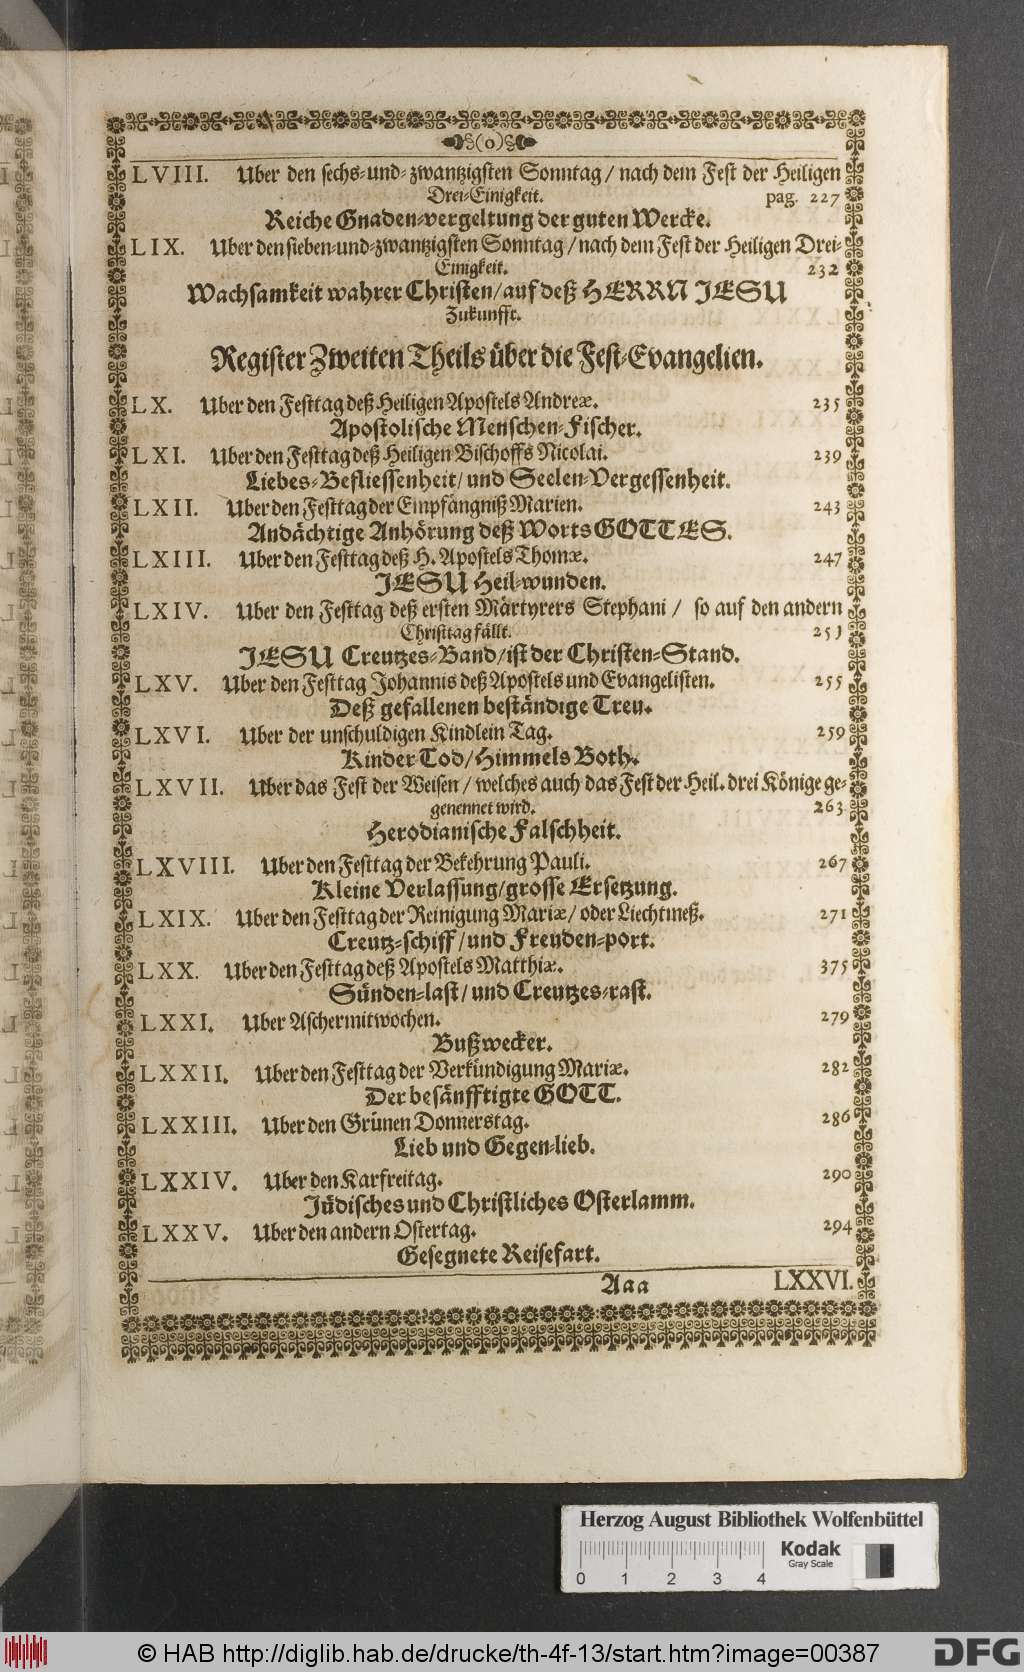 (o)
LVIII. Uber den sechs-und-zwantzigsten Sonntag / nach dem Fest der Heiligen
Drei-Einigkeit. pag. 227
Reiche Gnaden-vergeltung der guten Wercke.
LIX. Uber den sieben-und-zwantzigsten Sonntag / nach dem Fest der Heiligen Drei-
Einigkeit. 232
Wachsamkeit wahrer Christen/auf deß HERRN JESU
Zukunfft.
Register Zweiten Theils über die Fest-Evangelien.
LX. Uber den Festtag deß Heiligen Apostels Andreæ. 235
Apostolische Menschen-Fischer.
LXI. Uber den Festtag deß Heiligen Bischoffs Nicolai. 239
Liebes-Befliessenheit/und Seelen-Vergessenheit.
LXII. Uber den Festtag der Empfängniß Marien. 243
Andächtige Anhörung deß Worts GOTTES.
LXIII. Uber den Festtag deß H. Apostels Thomæ. 247
JESU Heil-wunden.
LXIV. Uber den Festtag deß ersten Märtyrers Stephani / so auf den andern
Christtag fällt. 251
JESU Creutzes-Band/ist der Christen-Stand.
LXV. Uber den Festtag Johannis deß Apostels und Evangelisten. 255
Deß gefallenen beständige Treu.
LXVI. Uber der unschuldigen Kindlein Tag. 259
Kinder Tod/Himmels Both.
LXVII. Uber das Fest der Weisen / welches auch das Fest der Heil. drei Könige ge-
genennet wird. 263
Herodianische Falschheit.
LXVIII. Uber den Festtag der Bekehrung Pauli. 267
Kleine Verlassung/grosse Ersetzung.
LXIX. Uber den Festtag der Reinigung Mariæ/oder Liechtmeß. 271
Creutz-schiff/und Freuden-port.
LXX. Uber den Festtag deß Apostels Matthiæ. 375
Sünden-last/und Creutzes-rast.
LXXI. Uber Aschermitwochen. 279
Bußwecker.
LXXII. Uber den Festtag der Verkündigung Mariæ. 282
Der besänfftigte GOTT.
LXXIII. Uber den Grünen Donnerstag. 286
Lieb und Gegen-lieb.
LXXIV. Uber den Karfreitag. 290
Jüdisches und Christliches Osterlamm.
LXXV. Uber den andern Ostertag. 294
Gesegnete Reisefart.
Aaa LXXVI.
Herzog August Bibliothek Wolfenbüttel
Kodak
Gray Scale
0 1 2 3 4
© HAB http://diglib.hab.de/drucke/th-4f-13/start.htm?image=00387
DFG